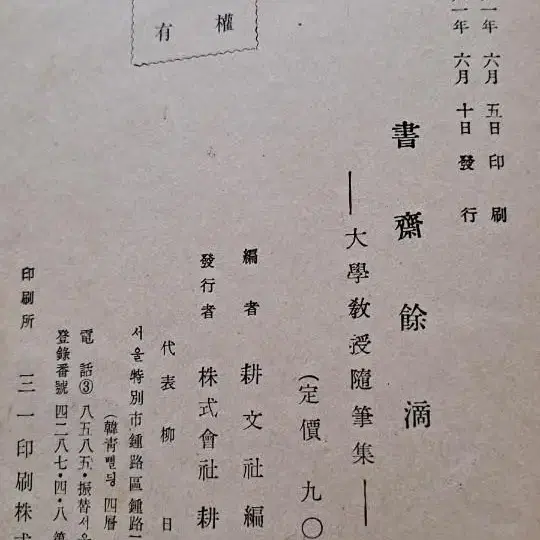 權
有
一年 六月 五日 印刷
一年 六月 十日 發行
書齋餘滴
―大學敎授隨筆集―
(定價 九〇
編者 耕文社編
發行者 株式會社 耕
代表 柳 日
서울特別市鍾路區鍾路
(韓靑삘딍 四層
電話③ 八五八五・振替서울
登錄番號 四二八七・四・八 第
印刷所 三一印刷株式